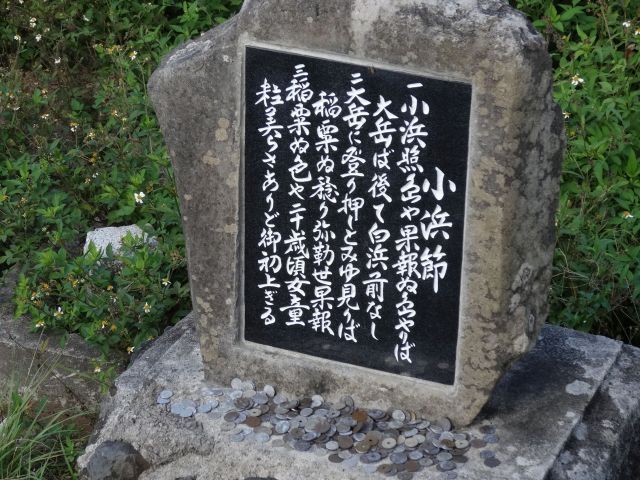 小浜節
一 小浜照島や果報ぬ島やりば
大岳ば後て白浜前なし
二 大岳に登り押とみゆ見りば
稲粟ぬ稔り弥勒世果報
三 稲粟ぬ色や二十歳頃女童
粒美らさありど御初上ぎる